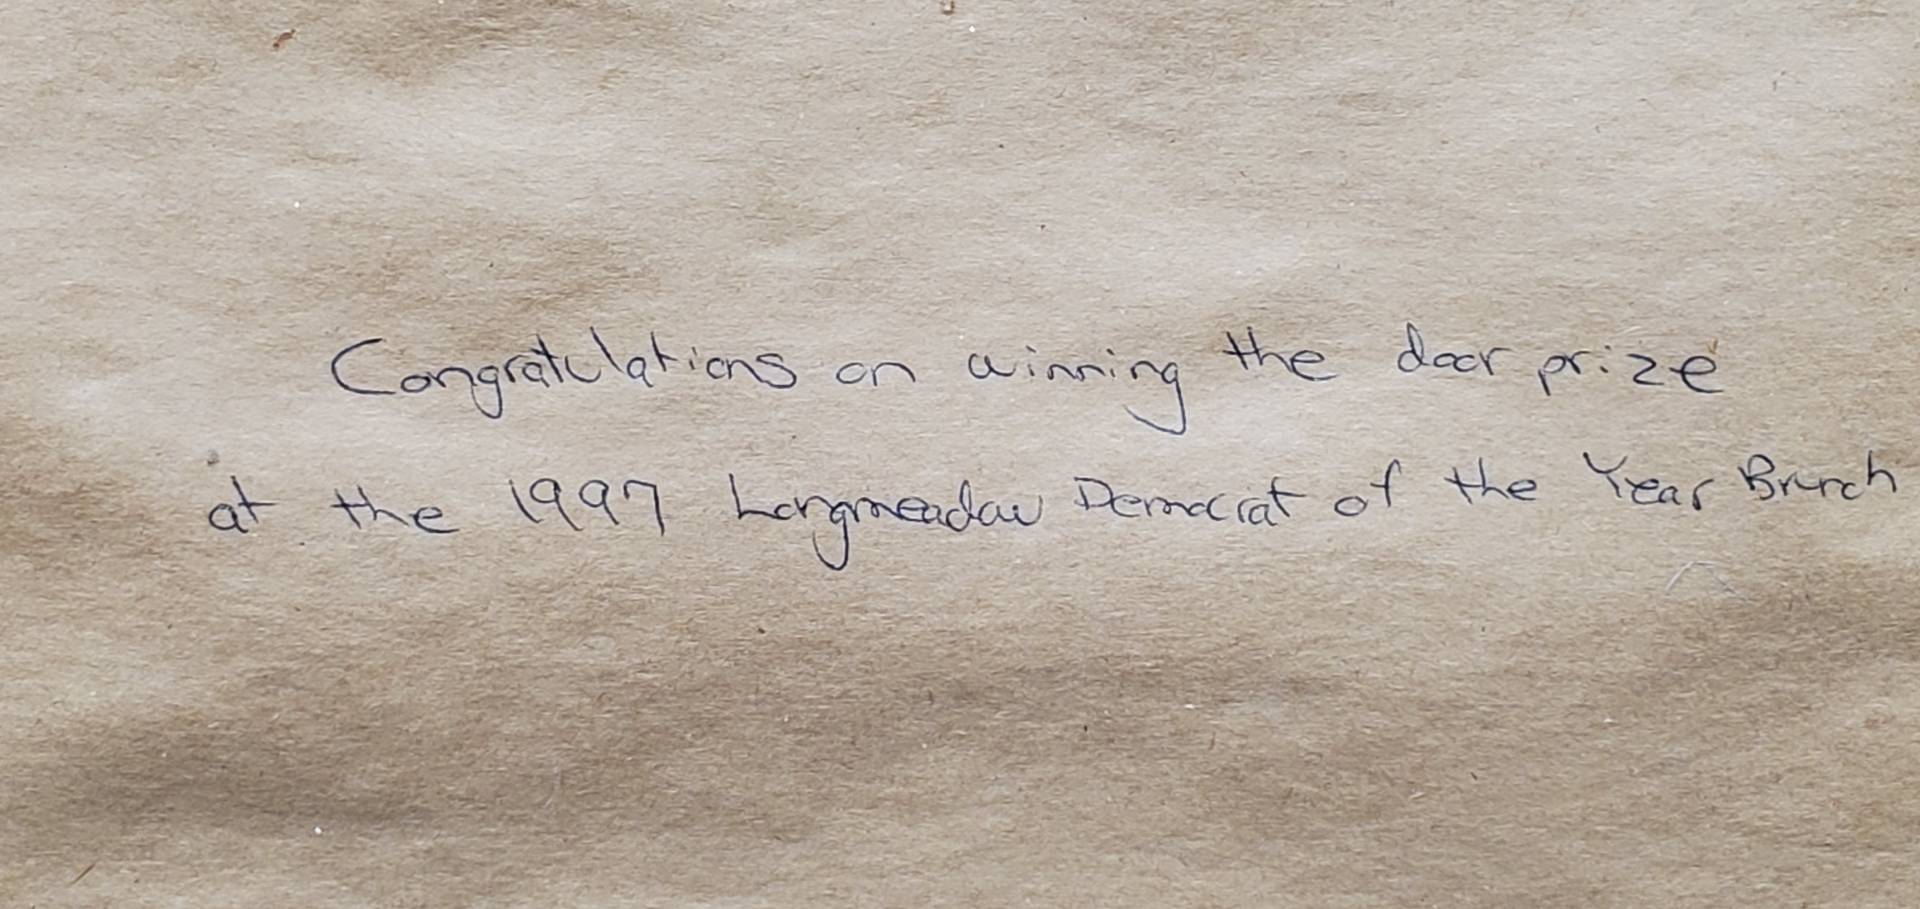 Congratulations on winning the door prize
at the 1997 Longmeadow Democrat of the Year Brunch